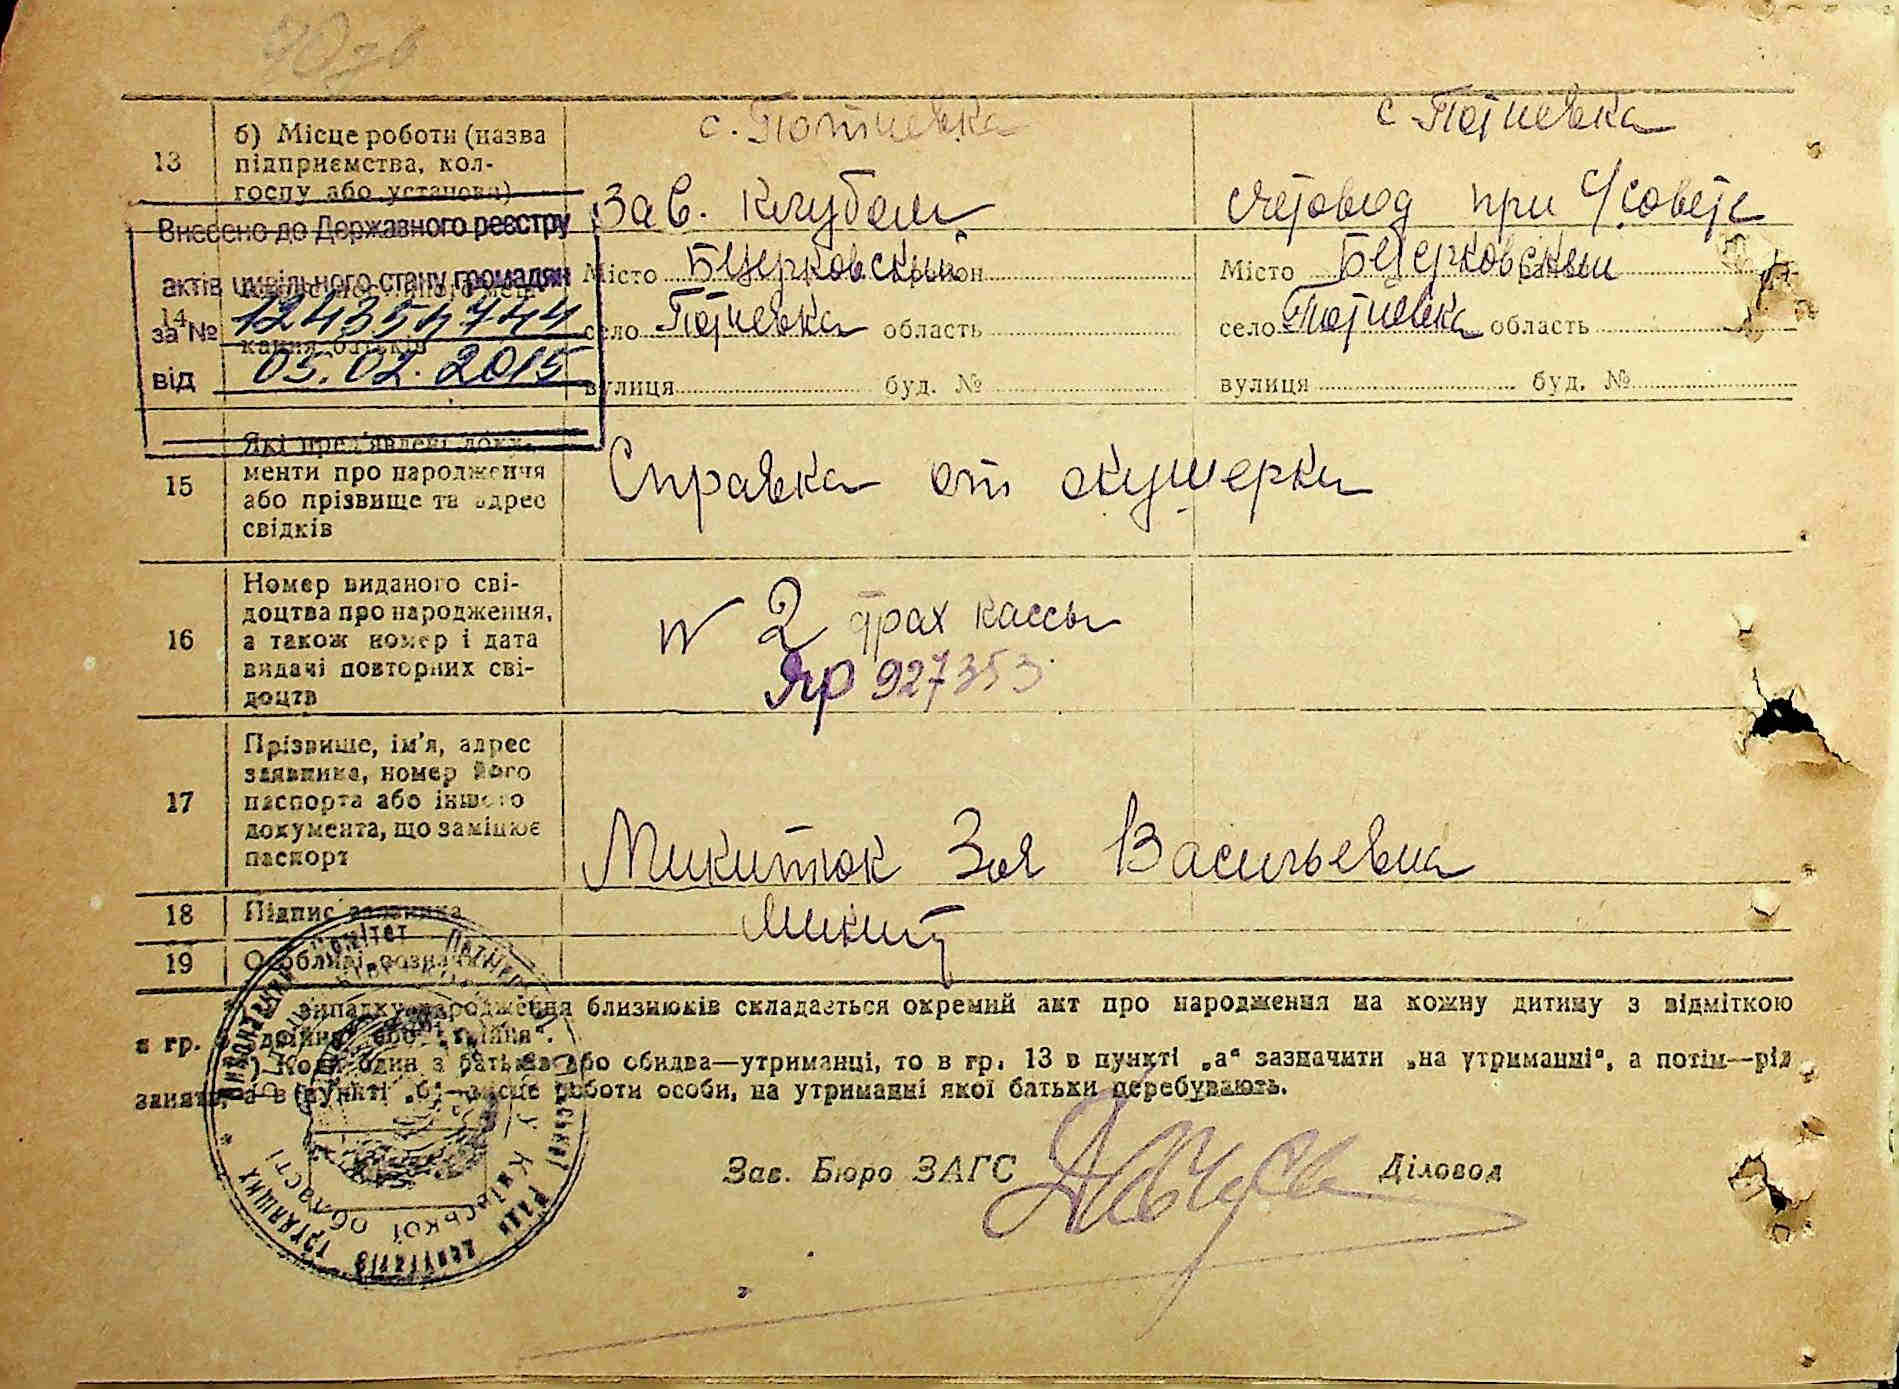 с. Потиевка
с Потиевка
13
б) Місце роботи (назва
підприємства, кол-
госпу або установи)
Зав. клубом
Счетовод при с/совете
Внесено до Державного реєстру
актів цивільного стану громадян
за № 1243544744
від 05.02.2015
14
Місто Бецерковский район
село Потиевка область
вулиця буд. №
Місто Бецерковский
село Потиевка область
вулиця буд. №
15
Які пред'явлені доку-
менти про народження
або прізвище та адрес
свідків
Справка от акушерки
16
Номер виданого сві-
доцтва про народження,
а також номер і дата
видачі повторних сві-
доцтв
№ 2 страх кассы
927353
17
Прізвище, ім'я, адрес
заявника, номер його
паспорта або іншого
документа, що заміцює
паспорт
Микитюк Зоя Васильевна
18
Підпис заявника
Микит
19
Особливі
випадку народження близнюків складається окремий акт про народження на кожну дитину з відміткою
в гр.
Коли один з батьків або обидва—утриманці, то в гр. 13 в пункті „а“ зазначити „на утриманні“, а потім—рід
занять, а в пункті „б“—місце роботи особи, на утриманні якої батьки перебувають.
Зав. Бюро ЗАГС
Діловод
Виконавчий Комітет
ради депутатів трудящих
Київської області